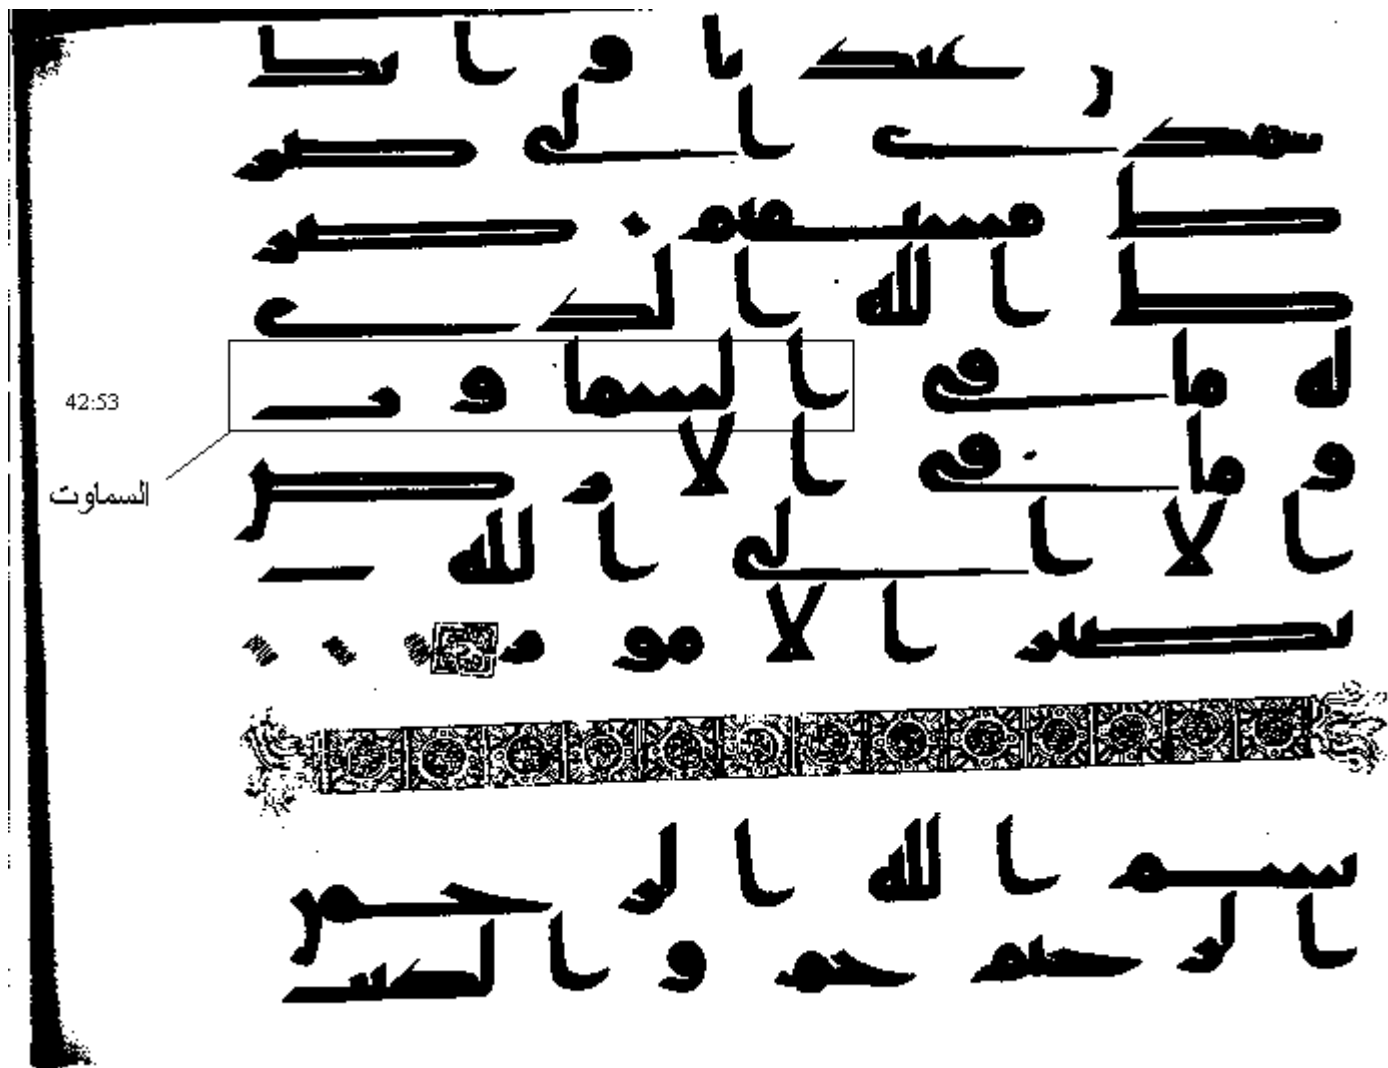 ن عبدنا وانك
لتهدي الى صر
ط مستقيم صر
ط الله الذي
له ما في السموت
42:53
وما في الارض
السماوت
الا الى الله ت
صير الامور
بسم الله الرحمن
الرحيم حم والكتب